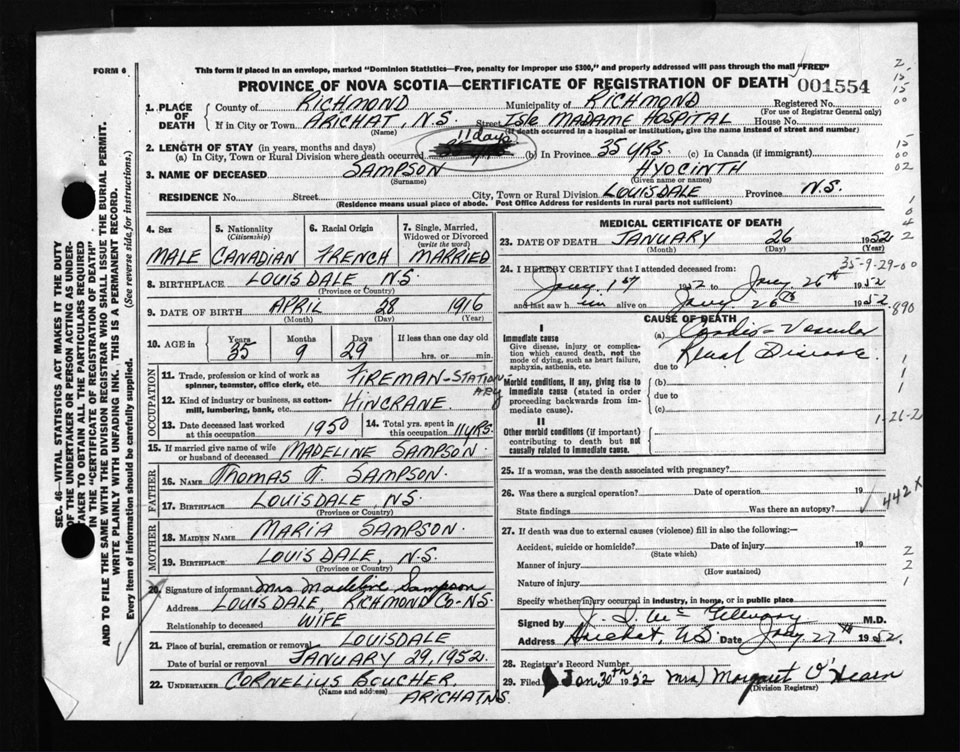 FORM 6
This form if placed in an envelope, marked "Dominion Statistics—Free, penalty for improper use $300," and properly addressed will pass through the mail "FREE"
PROVINCE OF NOVA SCOTIA—CERTIFICATE OF REGISTRATION OF DEATH 001554
1. PLACE OF DEATH County of RICHMOND Municipality of RICHMOND Registered No.
(For use of Registrar General only)
If in City or Town ARICHAT, N.S. Street Isle MADAME HOSPITAL House No.
(Name) (If death occurred in a hospital or institution, give the name instead of street and number)
2. LENGTH OF STAY (in years, months and days) 11 days
(a) In City, Town or Rural Division where death occurred (b) In Province 35 YRS. (c) In Canada (if immigrant)
3. NAME OF DECEASED SAMPSON HYOCINTH
(Surname) (Given name or names)
RESIDENCE No. Street City, Town or Rural Division LOUISDALE Province N.S.
(Residence means usual place of abode. Post Office Address for residents in rural parts not sufficient)
4. Sex MALE
5. Nationality (Citizenship) CANADIAN
6. Racial Origin FRENCH
7. Single, Married, Widowed or Divorced (write the word) MARRIED
8. BIRTHPLACE LOUISDALE N.S.
(Province or Country)
9. DATE OF BIRTH APRIL 28 1916
(Month) (Day) (Year)
10. AGE in Years Months Days If less than one day old
35 9 29 hrs. or min.
OCCUPATION
11. Trade, profession or kind of work as spinner, teamster, office clerk, etc. FIREMAN-STATIONARY
12. Kind of industry or business, as cotton-mill, lumbering, bank, etc. HINCRANE.
13. Date deceased last worked at this occupation 1950 14. Total yrs. spent in this occupation 11 YRS.
15. If married give name of wife or husband of deceased MADELINE SAMPSON
FATHER
16. Name Thomas F. SAMPSON.
17. Birthplace LOUISDALE, N.S.
(Province or Country)
MOTHER
18. Maiden Name MARIA SAMPSON.
19. Birthplace LOUISDALE, N.S.
(Province or Country)
20. Signature of informant Mrs Madeline Sampson
Address LOUISDALE, RICHMOND CO-NS.
Relationship to deceased WIFE
21. Place of burial, cremation or removal LOUISDALE
Date of burial or removal JANUARY 29, 1952.
22. UNDERTAKER CORNELIUS BOUCHER
(Name and address) ARICHAT NS.
MEDICAL CERTIFICATE OF DEATH
23. DATE OF DEATH JANUARY 26 1952
(Month) (Day) (Year)
24. I HEREBY CERTIFY that I attended deceased from: 35-9-29-00
Jany. 1st 1952 to Jany. 26th 1952
and last saw him alive on Jany. 26th 1952. 890
CAUSE OF DEATH
I
Immediate cause
Give disease, injury or complication which caused death, not the mode of dying, such as heart failure, asphyxia, asthenia, etc.
(a) Cardio-Vascular
Renal Disease.
due to
Morbid conditions, if any, giving rise to immediate cause (stated in order proceeding backwards from immediate cause).
(b)
due to
(c)
1-26-2
II
Other morbid conditions (if important) contributing to death but not causally related to immediate cause.
25. If a woman, was the death associated with pregnancy?
26. Was there a surgical operation? Date of operation 19
State findings Was there an autopsy? 442X
27. If death was due to external causes (violence) fill in also the following:—
Accident, suicide or homicide? Date of injury 19
(State which)
Manner of injury
(How sustained)
Nature of injury
Specify whether injury occurred in industry, in home, or in public place
Signed by M.D.
Address Arichat, N.S. Date Jany 27th 1952.
28. Registrar's Record Number
29. Filed Jan 30th 1952 Mrs) Margaret O'Hearn
(Division Registrar)
SEC. 46—VITAL STATISTICS ACT MAKES IT THE DUTY
OF THE UNDERTAKER OR PERSON ACTING AS UNDER-
TAKER TO OBTAIN ALL THE PARTICULARS REQUIRED
IN THE "CERTIFICATE OF DEATH"
AND TO FILE THE SAME WITH THE DIVISION REGISTRAR WHO SHALL ISSUE THE BURIAL PERMIT.
WRITE PLAINLY WITH UNFADING INK. THIS IS A PERMANENT RECORD.
Every item of information should be carefully supplied. (See reverse side for instructions.)